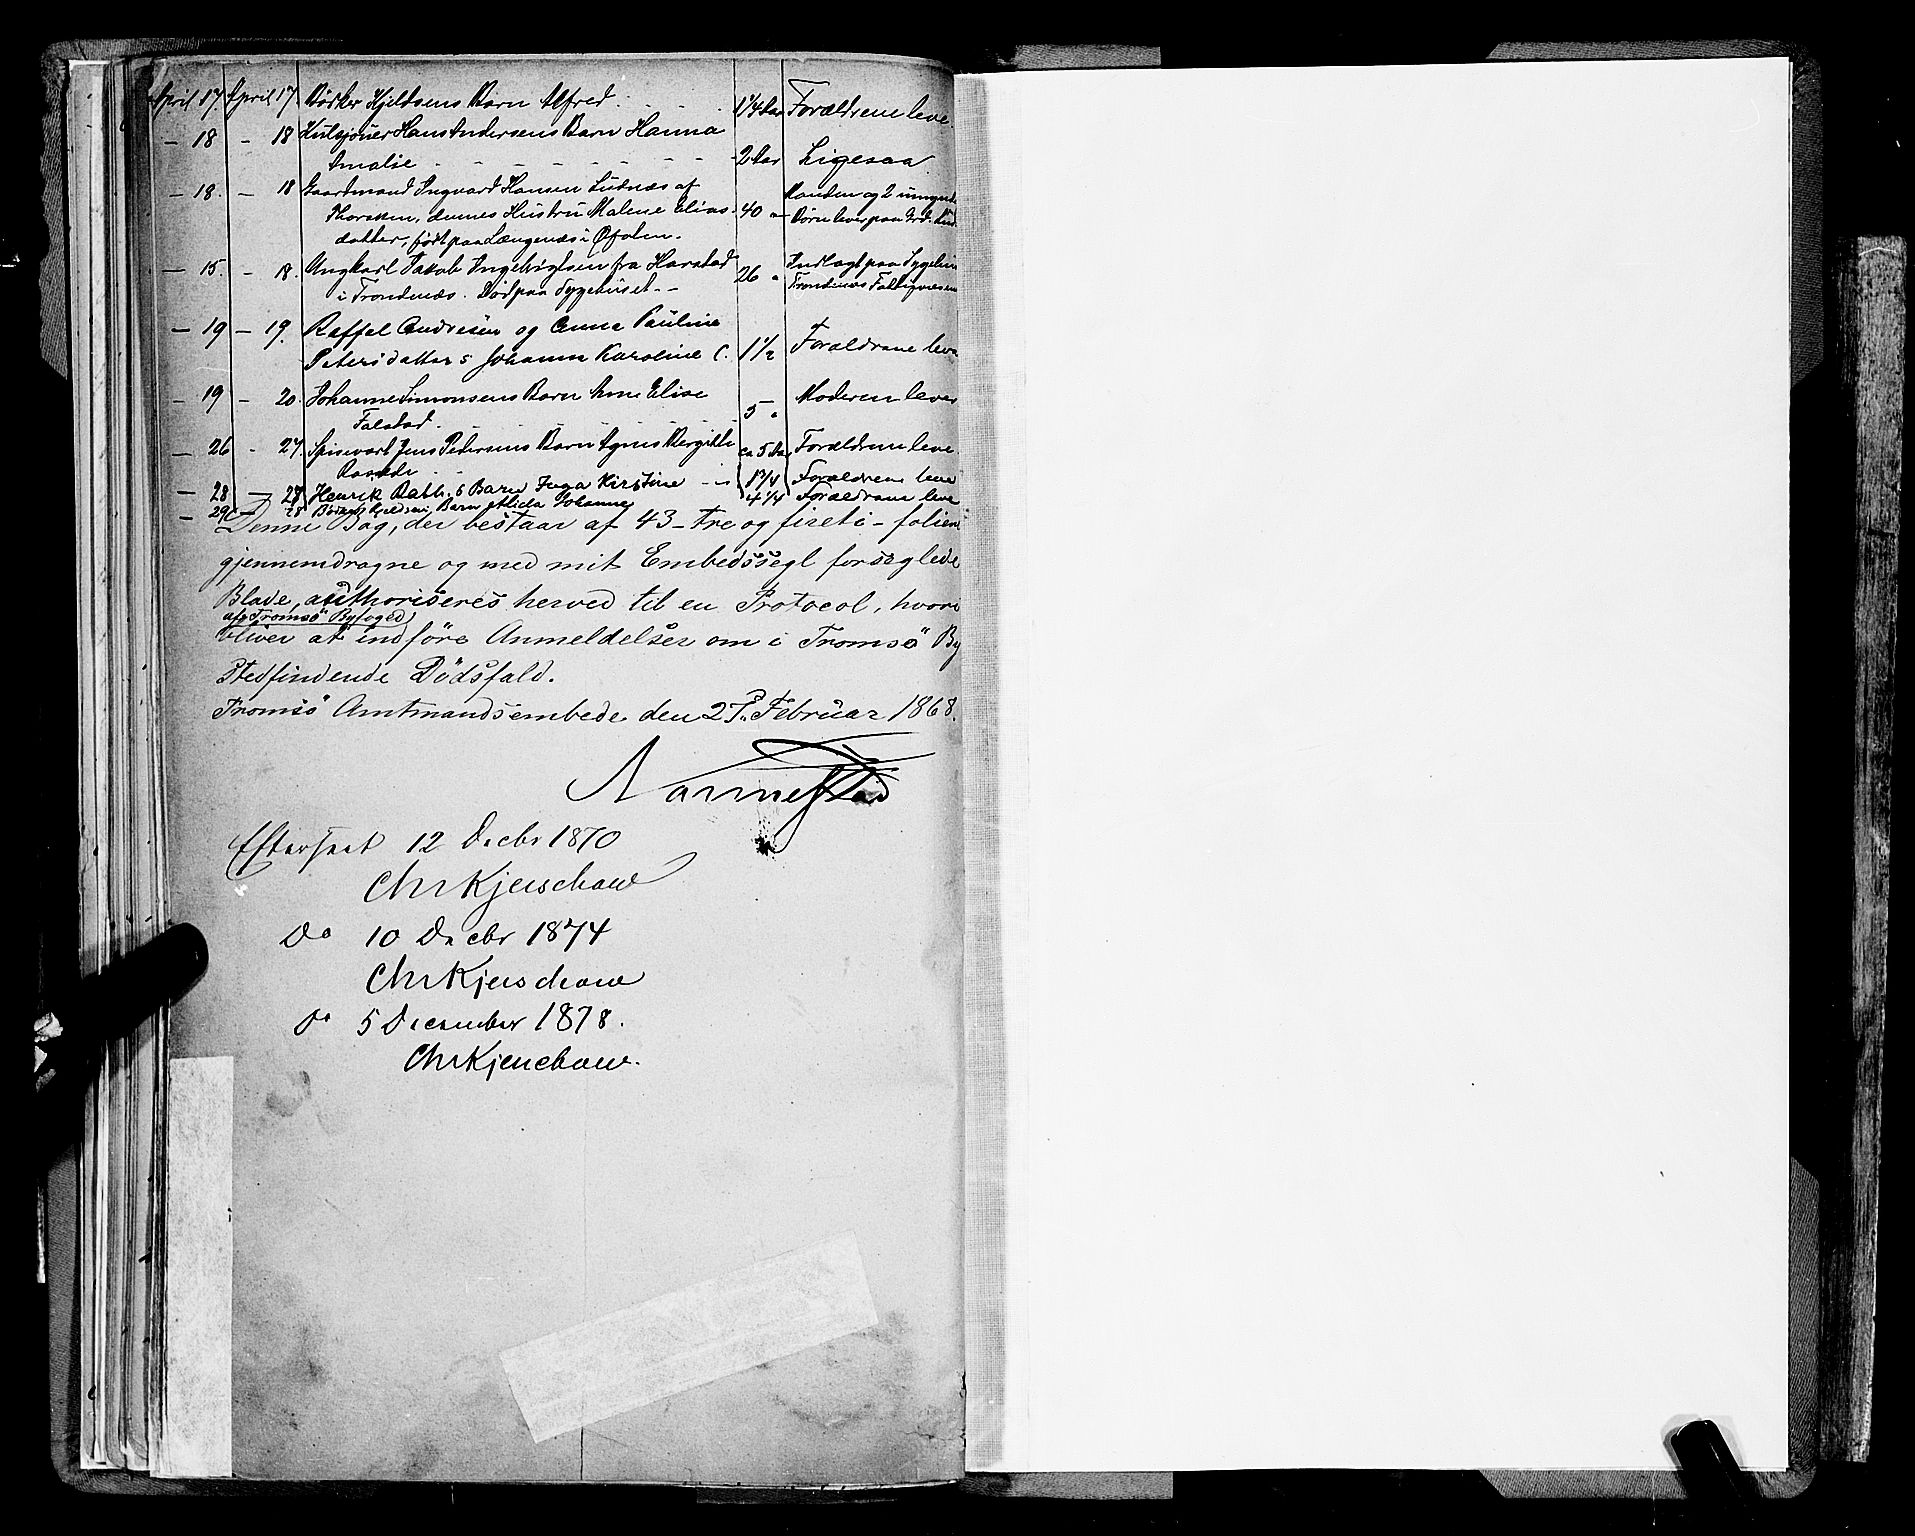 April 17 April 17 Bødker Hjeldsens Barn Alfred 1 1/4 Aar Forældrene leve.
— 18 — 18 Kulsjouer Hans Andersens Barn Hanna
Amalie 2 Aar Ligesaa
— 18. — 18 Gaardmand Ingvard Hansen Lutnæs af Manden og 2 umynd.
Thorsken, dennes Hustru Malene Elias- 40 " Børn lever paa
datter, født paa Længenæs i Øfolen.
— 15. — 18. Ungkarl Jakob Ingebrigtsen fra Harstad 26 " Indlagt paa Sygehus
i Trondenæs. Død paa Sygehuset. — Trondenæs Fattigvæsen
— 19 — 19. Raffal Andresen og Anna Pauline
Petersdatters Johanna Karoline C. 1 1/2 Foraldrane leva
— 19 — 20. Johanne Simonsens Barn Anne Elise Moderen lever
Falstad. 5 "
— 26 - 27. Spisevært Jens Petersens Barn Agnes Bergitte ca 5 Aar Forældrene leve
— 28 — 28 Henrik Rath s Barn Inga Kirstine 1 3/4 Foraldrene leve
— 29 — 28 Bødker Hjeldsens Barn Alida Johanne 4 1/4 Foraldrane leve
Denne Bog, der bestaar af 43 - tre og fireti - folierede
gjennemdragne og med mit Embedssegl forseglede
Blade, authoriseres herved til en Protocol, hvori
af Tromsö Byfoged
bliver at indföre Anmeldelser om i Tromsö By
Stedfindende Dödsfald.
Tromsö Amtmandsembede den 27. Februar 1868.
Nannestad
Efterseet 12 Decbr 1870
Chr Kjerschow
Do 10 Decbr 1874
Chr Kjerschow
Do 5 December 1878.
Chr Kjerschow.